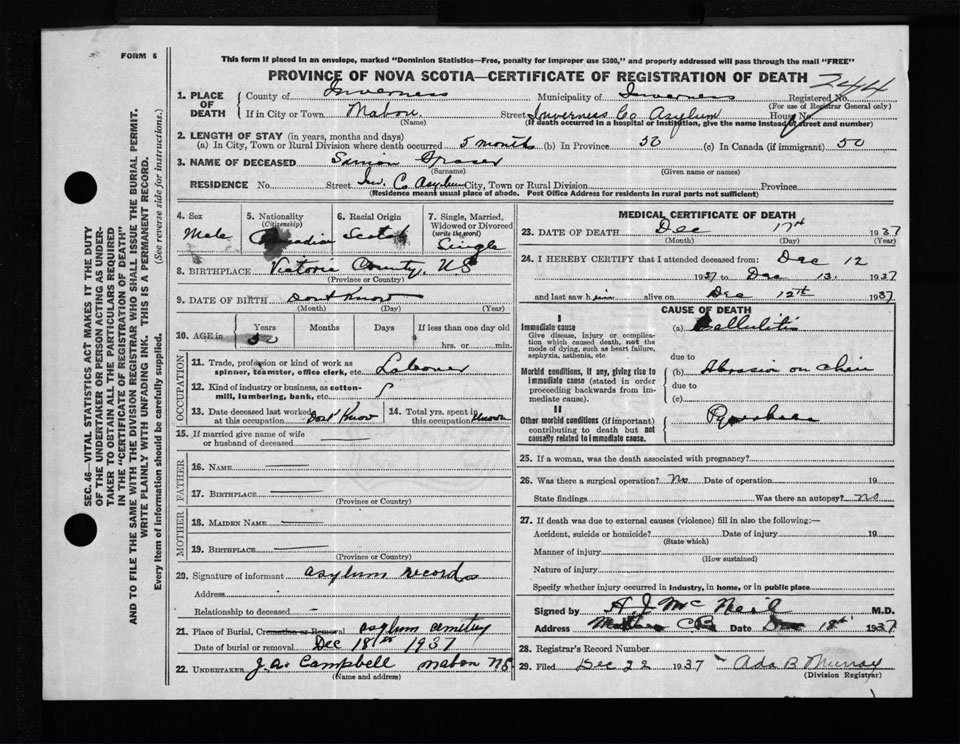 FORM 6
This form if placed in an envelope, marked "Dominion Statistics—Free, penalty for improper use $300," and properly addressed will pass through the mail "FREE"
PROVINCE OF NOVA SCOTIA—CERTIFICATE OF REGISTRATION OF DEATH
1. PLACE OF DEATH County of Inverness Municipality of Inverness Registered No. 244
(For use of Registrar General only)
If in City or Town Mabou Street Inverness Co Asylum House No.
(Name) (If death occurred in a hospital or institution, give the name instead of street and number)
2. LENGTH OF STAY (in years, months and days)
(a) In City, Town or Rural Division where death occurred 5 month (b) In Province 50 (c) In Canada (if immigrant) 50
3. NAME OF DECEASED Simon Fraser
(Surname) (Given name or names)
RESIDENCE No. Street Inv. Co Asylum City, Town or Rural Division Province
(Residence means usual place of abode. Post Office Address for residents in rural parts not sufficient)
SEC. 46—VITAL STATISTICS ACT MAKES IT THE DUTY
OF THE UNDERTAKER OR PERSON ACTING AS UNDER-
TAKER TO OBTAIN ALL THE PARTICULARS REQUIRED
IN THE "CERTIFICATE OF REGISTRATION OF DEATH"
AND TO FILE THE SAME WITH THE DIVISION REGISTRAR WHO SHALL ISSUE THE BURIAL PERMIT.
WRITE PLAINLY WITH UNFADING INK. THIS IS A PERMANENT RECORD.
Every item of information should be carefully supplied. (See reverse side for instructions.)
4. Sex
Male
5. Nationality
(Citizenship)
Canadian
6. Racial Origin
Scotch
7. Single, Married,
Widowed or Divorced
(write the word)
Single
8. BIRTHPLACE Victoria County, NS
(Province or Country)
9. DATE OF BIRTH Dont Know
(Month) (Day) (Year)
10. AGE in Years Months Days If less than one day old
50 hrs. or min.
OCCUPATION
11. Trade, profession or kind of work as
spinner, teamster, office clerk, etc. Labourer
12. Kind of industry or business, as cotton-
mill, lumbering, bank, etc.
13. Date deceased last worked
at this occupation Dont Know
14. Total yrs. spent in
this occupation
15. If married give name of wife
or husband of deceased
FATHER
16. NAME
17. BIRTHPLACE
(Province or Country)
MOTHER
18. MAIDEN NAME
19. BIRTHPLACE
(Province or Country)
20. Signature of informant asylum records
Address
Relationship to deceased
21. Place of Burial, Cremation or Removal asylum cemetery
Date of burial or removal Dec 18th 1937
22. UNDERTAKER J. A. Campbell mabou NS
(Name and address)
MEDICAL CERTIFICATE OF DEATH
23. DATE OF DEATH Dec 17th 1937
(Month) (Day) (Year)
24. I HEREBY CERTIFY that I attended deceased from: Dec 12
1937 to Dec 13. 1937
and last saw him alive on Dec 12th 1937
CAUSE OF DEATH
I
Immediate cause
Give disease, injury or complica-
tion which caused death, not the
mode of dying, such as heart failure,
asphyxia, asthenia, etc
(a) Cellulitis
due to
Morbid conditions, if any, giving rise to
immediate cause (stated in order
proceeding backwards from im-
mediate cause).
(b) Abrasion on chin
due to
(c)
II
Other morbid conditions (if important)
contributing to death but not
causally related to immediate cause.
Pyorrhoea
25. If a woman, was the death associated with pregnancy?
26. Was there a surgical operation? No Date of operation 19
State findings Was there an autopsy? no
27. If death was due to external causes (violence) fill in also the following:—
Accident, suicide or homicide? Date of injury 19
(State which)
Manner of injury
(How sustained)
Nature of injury
Specify whether injury occurred in industry, in home, or in public place
Signed by A J McNeil M.D.
Address Mabou C.B. Date Dec 18th 1937
28. Registrar's Record Number
29. Filed Dec 22 1937 Ada B Murray
(Division Registrar)